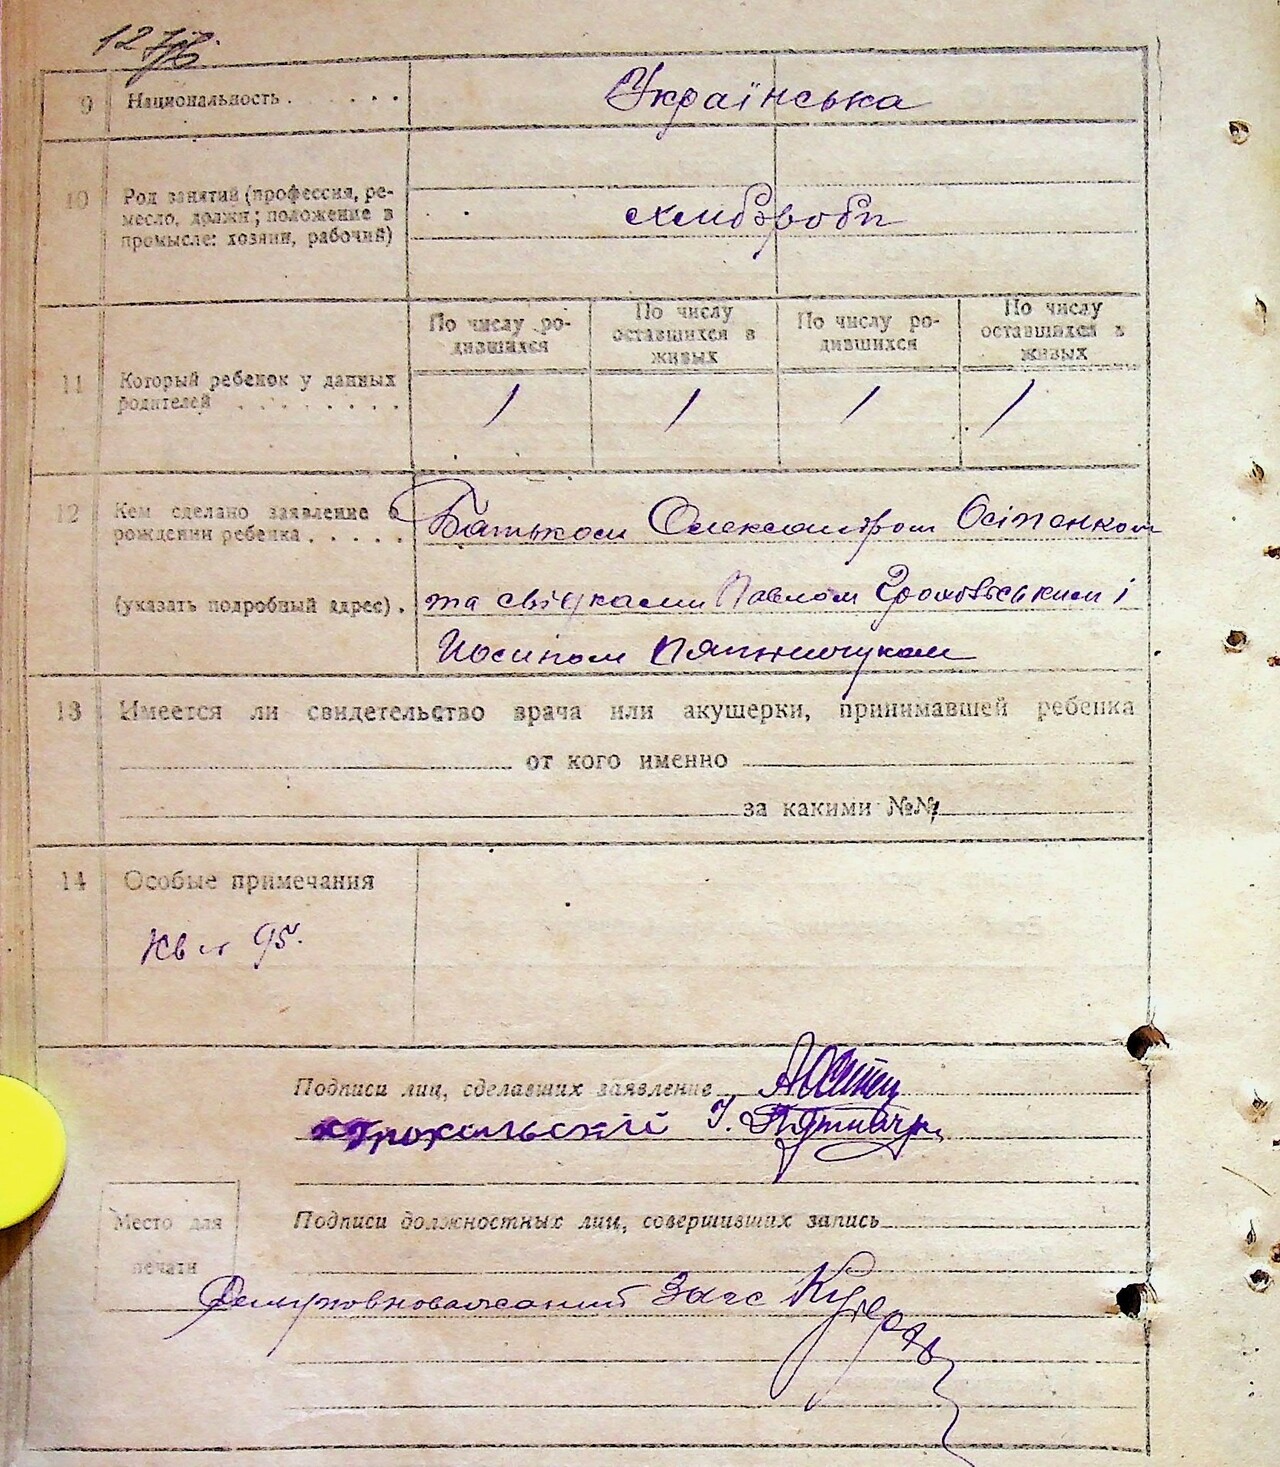 9 Национальность . . . . . . Українська
10 Род занятий (профессия, ре-
месло, должн; положение в
промысле: хозяин, рабочий)
хлібороби
По числу ро-
дившихся
По числу
оставшихся в
живых
По числу ро-
дившихся
По числу
оставшихся в
живых
11 Который ребенок у данных
родителей . . . . . . . .
1 1 1 1
12 Кем сделано заявление о
рождении ребенка . . . . .
(указать подробный адрес) .
Батьком Олександром Осіпенком
та свідками Павлом Грохольським і
Йосипом Пятничуком
13 Имеется ли свидетельство врача или акушерки, принимавшей ребенка
от кого именно
за какими №№
14 Особые примечания
95.
Подписи лиц, сделавших заявление
Грохольский
Подписи должностных лиц, совершивших запись
Место для
печати
Загс